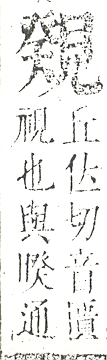 丘位切音
視也與睽通